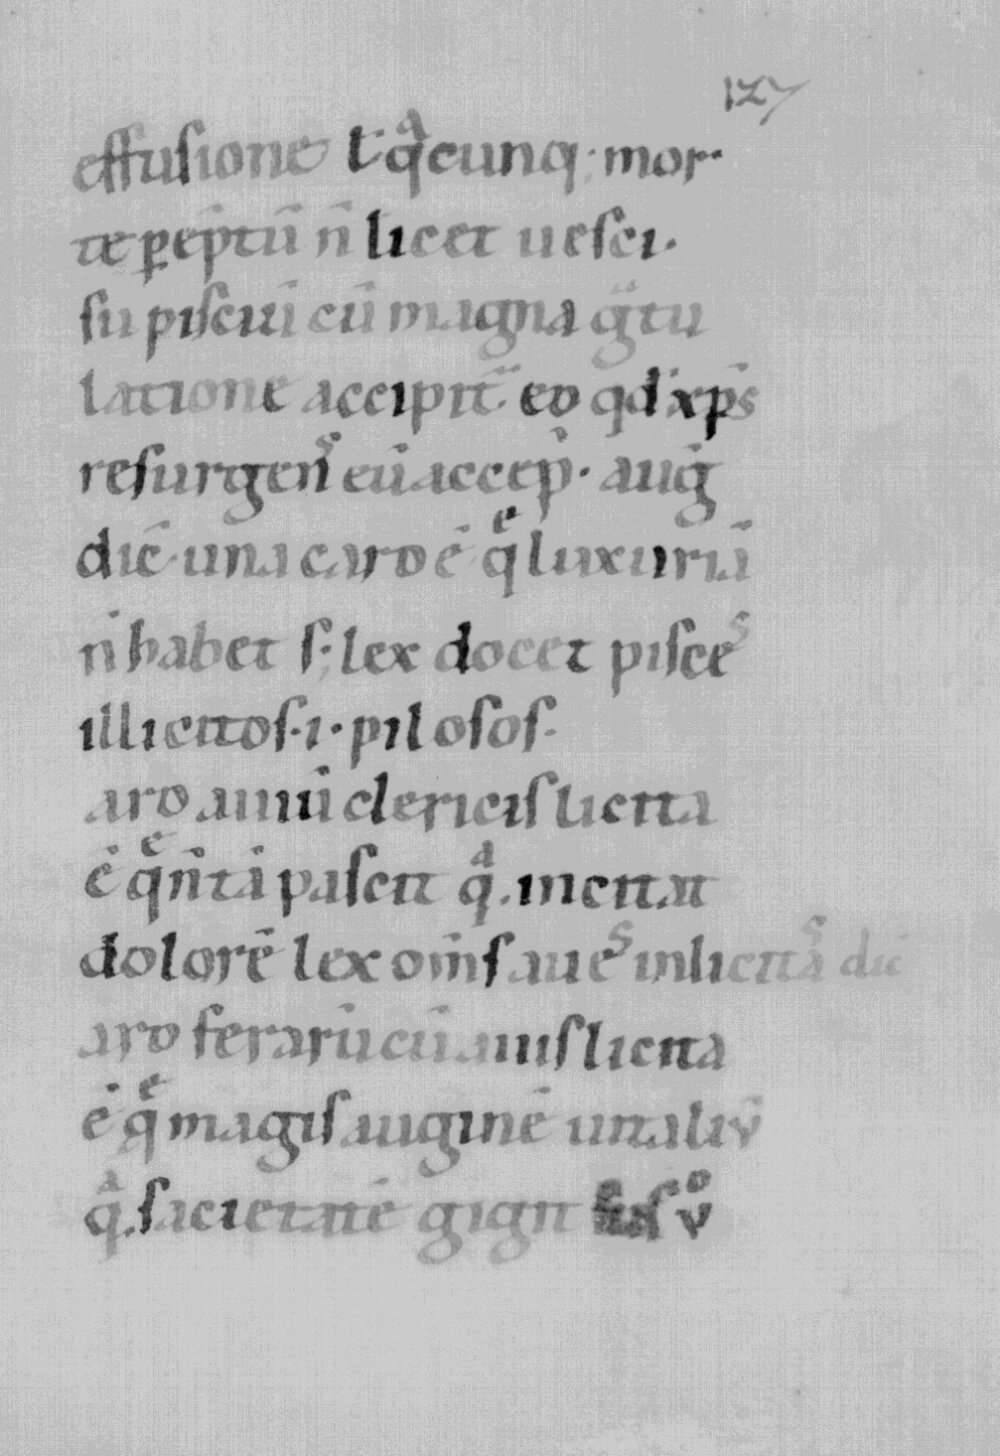 127
effusione ł qͣcunq; mor·
te ꝑēptū n̄ licet uesci·
su pisciū cū magna gͣtu
latione accipit᷑· eo qd xp̄s
resurgenˢ eū accep̄· auḡ
dic̄· una caro ē qͤ luxuriā
n̄ habet s; lex docet pisceˢ
illicitos· i· pilosos·
aro auiū clericis licita
ē qͤ n̄ tā pascit qͣ· incitat
dolorē lex om̄s aueˢ inlicitaˢ dic̄
aro ferarū cū auis licita
ē qͤ magis auginē uitaliu̅
qͣ· sacietatē gignit